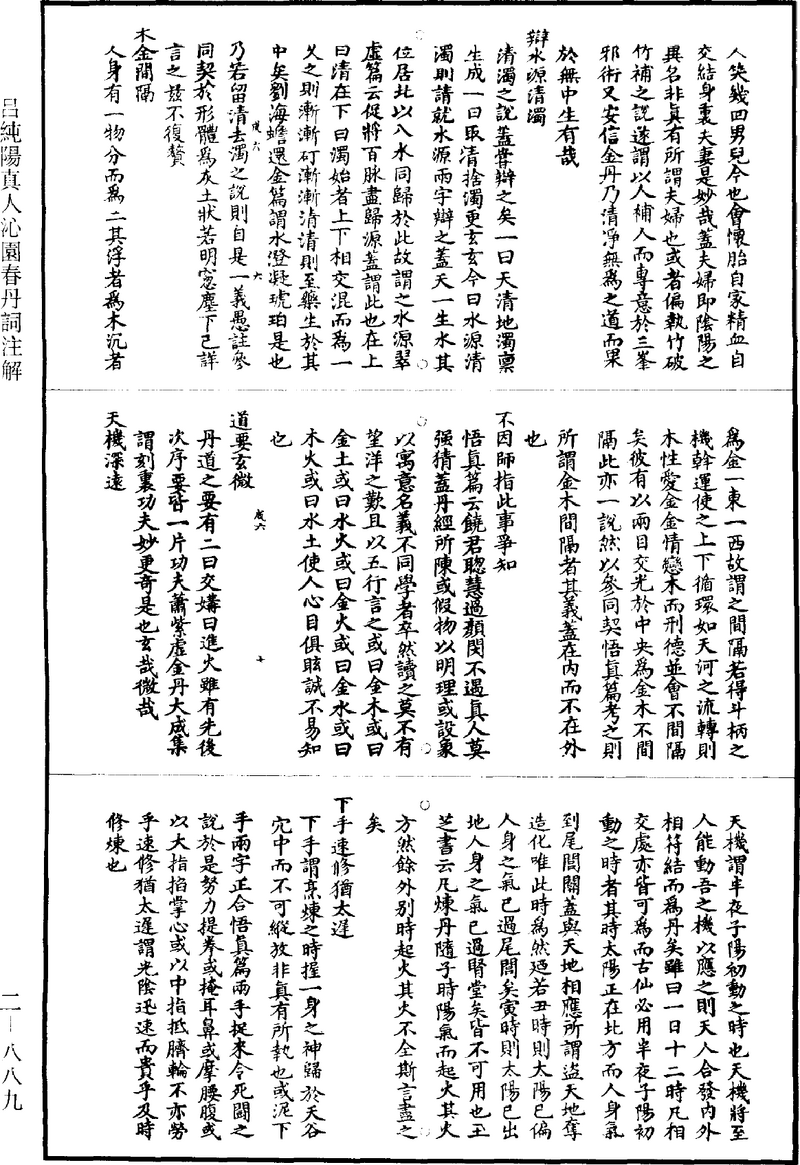 人笑幾回男兒今也會懷胎自家精血自
交結身裏夫妻是妙哉蓋夫婦即陰陽之
異名非真有所謂夫婦也或者偏執竹破
竹補之說遂謂以人補人而專意於三峯
邪術又安信金丹乃清淨無為之道而果
於無中生有哉
辯水源清濁
清濁之說蓋嘗辯之矣一曰天清地濁稟
生成一曰取清捨濁更玄玄今曰水源清
濁則請就水源兩字辯之蓋天一生水其
位居北以八水同歸於此故謂之水源翠
虛篇云促將百脉盡歸源蓋謂此也在上
曰清在下曰濁始者上下相交混而為一
久之則漸漸矴漸漸清清則至藥生於其
中矣劉海蟾還金篇謂水澄凝琥珀是也
乃若留清去濁之說則自是一義愚註參
同契於形體為灰土狀若明窓塵下已詳
言之茲不復贅
木金間隔
人身有一物分而為二其浮者為木沉者
為金一東一西故謂之間隔若得斗柄之
機斡運使之上下循環如天河之流轉則
木性愛金金情戀木而刑德並會不間隔
矣彼有以兩目交光於中央為金木不間
隔此亦一說然以參同契悟真篇考之則
所謂金木間隔者其義蓋在內而不在外
也
不因師指此事爭知
悟真篇云饒君聰慧過顏閔不遇真人莫
强猜蓋丹經所陳或假物以明理或設象
以寓意名義不同學者卒然讀之莫不有
望洋之歎且以五行言之或曰金木或曰
金土或曰水火或曰金火或曰金水或曰
木火或曰水土使人心目俱眩誠不易知
也
道要玄微
丹道之要有二曰交媾曰進火雖有先後
次序要皆一片功夫蕭紫虛金丹大成集
謂刻裏功夫妙更奇是也玄哉微哉
天機深遠
天機謂半夜子陽初動之時也天機將至
人能動吾之機以應之則天人合發內外
相符結而為丹矣雖曰一日十二時凡相
交處亦皆可為而古仙必用半夜子陽初
動之時者其時太陽正在北方而人身氣
到尾閭關蓋與天地相應所謂盜天地奪
造化唯此時為然廼若丑時則太陽已偏
人身之氣已過尾閭矣寅時則太陽已出
地人身之氣已過腎堂矣皆不可用也王
芝書云凡煉丹隨子時陽氣而起火其火
方然餘外別時起火其火不全斯言盡之
矣
下手速修猶太遲
下手謂烹煉之時握一身之神歸於天谷
穴中而不可縱放非真有所執也或泥下
手兩字正合悟真篇兩手捉來令死鬭之
說於是努力提拳或掩耳鼻或摩腰腹或
以大指掐掌心或以中指抵臍輪不亦勞
乎速修猶太遲謂光陰迅速而貴乎及時
修煉也
呂純陽真人沁園春丹詞注解
二—八八九